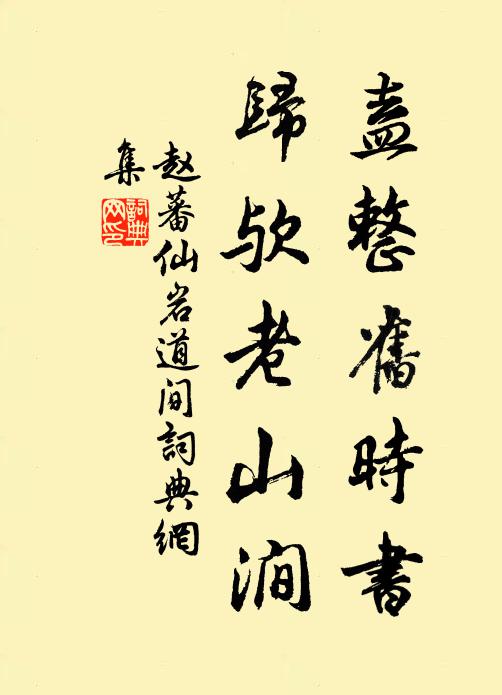 盍整舊時書
歸欤老山涧
赵蕃仙岩道间詞典網
集
詞典网印